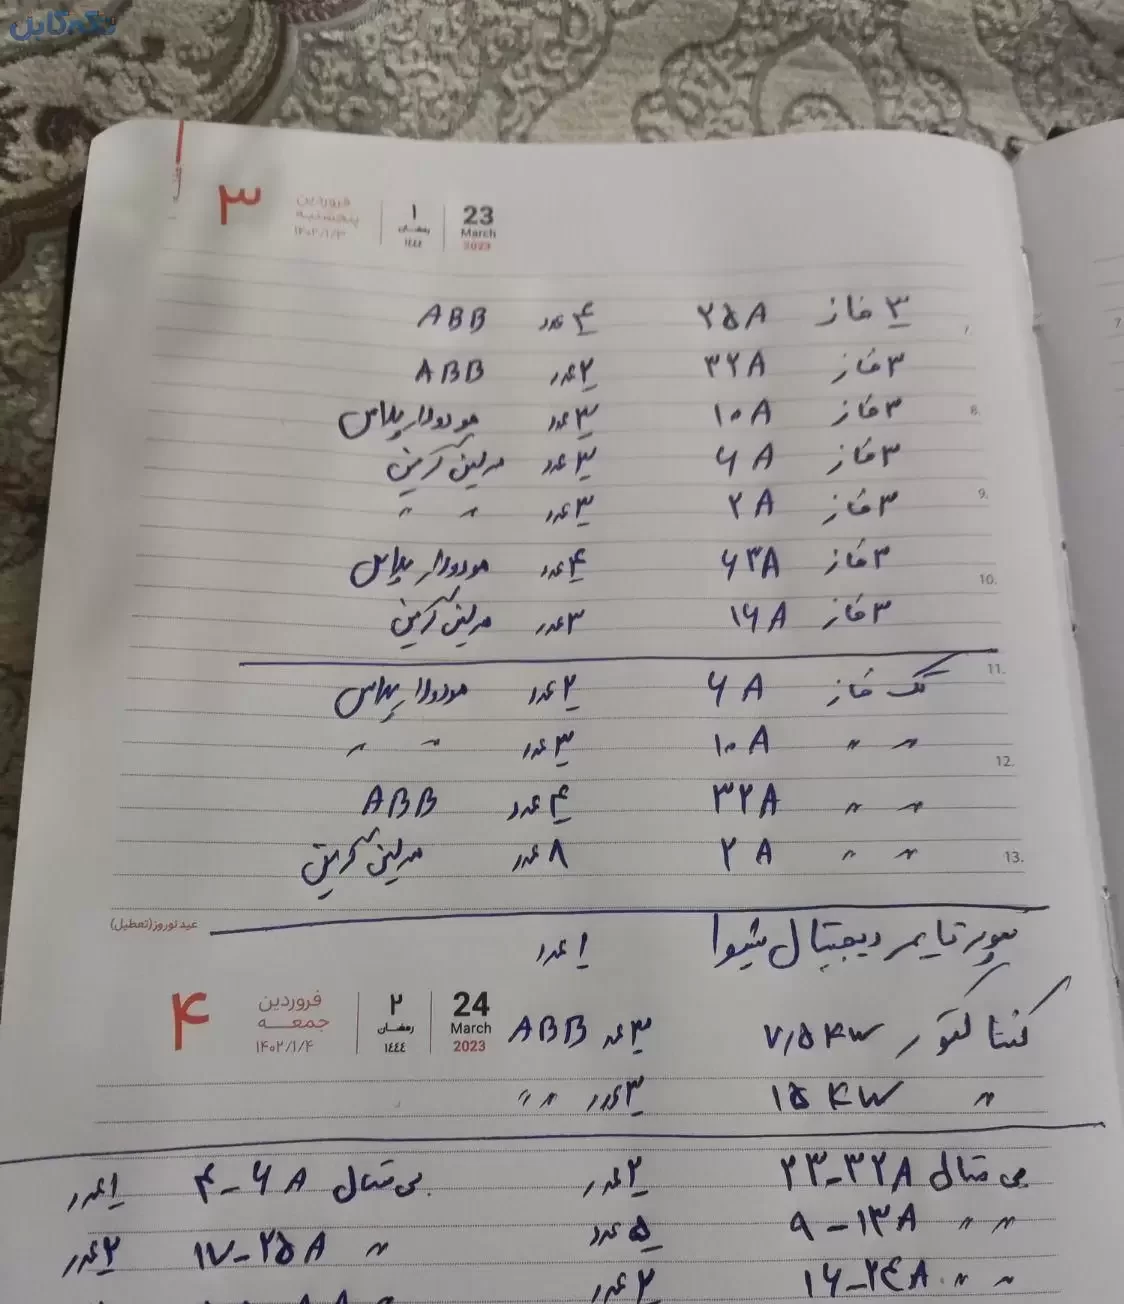 تگم‌کابل
۳
فروردین
پنجشنبه
۱۴۰۲/۱/۳
۱
رمضان
١٤٤٤
23
March
2023
۳ فاز ۲۵A ۴ عدد ABB
۳ فاز ۳۲A ۲ عدد ABB
۳ فاز ۱۰A ۳ عدد مودولار پلاس
۳ فاز ۶A ۳ عدد مرلین گرین
۳ فاز ۲A ۳ عدد " "
۳ فاز ۶۳A ۴ عدد مودولار پلاس
۳ فاز ۱۶A ۳ عدد مرلین گرین
تک فاز ۶A ۲ عدد مودولار پلاس
" " ۱۰A ۳ عدد " "
" " ۳۲A ۴ عدد ABB
" " ۲A ۸ عدد مرلین گرین
8.
9.
10.
11.
12.
13.
عید نوروز (تعطیل)
تایمر دیجیتال شیوا ۱ عدد
۴
فروردین
جمعه
۱۴۰۲/۱/۴
۲
رمضان
١٤٤٤
24
March
2023
کنتاکتور ۷,۵kW ۳ عدد ABB
" ۱۵kW ۳ عدد " "
بی متال ۲۳-۳۲A ۲ عدد بی متال ۴-۶A ۱ عدد
" " ۹-۱۳A ۵ عدد " ۱۷-۲۵A ۲ عدد
" " ۱۶-۲٤A ۲ عدد
7